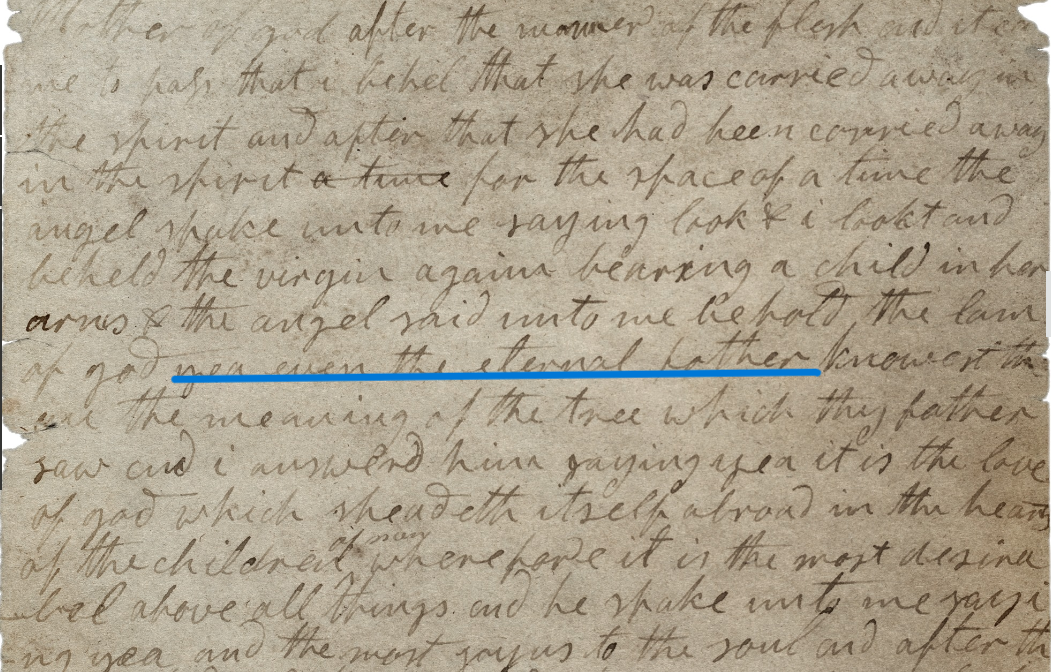 Mother of god after the manner of the flesh and it ca
me to pass that i behel that she was carried away in
the spirit and after that she had been carried away
in the spirit a time for the space of a time the
angel spake unto me saying look & i lookt and
beheld the virgin again bearing a child in her
arms & the angel said unto me behold the lam
of god yea even the eternal father knowest th
ou the meaning of the tree which thy father
saw and i answerd him saying yea it is the love
of god which sheadeth itself abroad in the hearts
of the children of men wherefore it is the most desira
bel above all things and he spake unto me sayi
ng yea and the most joyus to the soul and after th